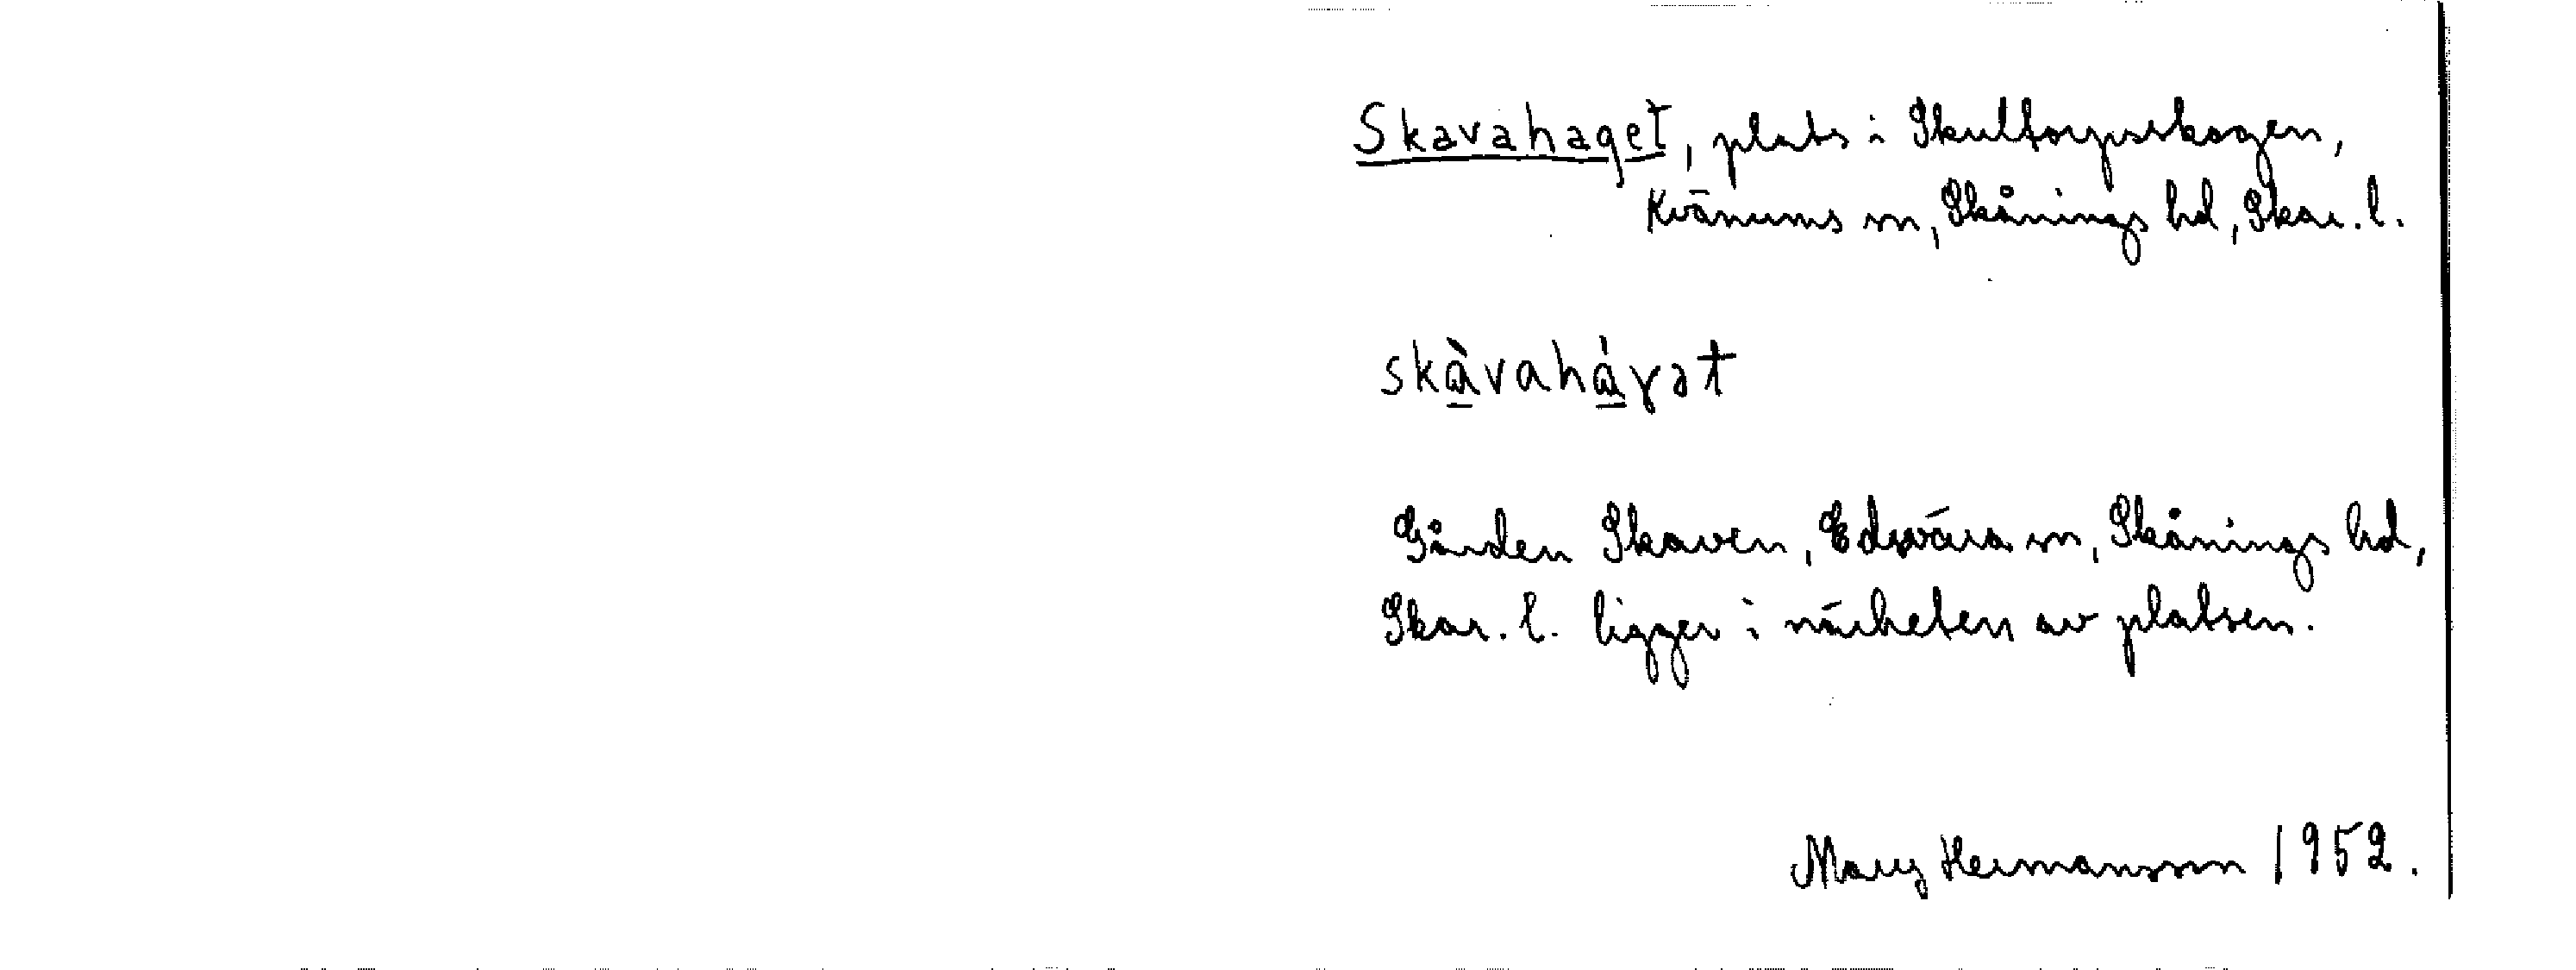 Skavahaget, plats i Skultorpsskogen,
Kvänums sn, Skånings hd, Skar. l.
skàvaháγət
Gården Skaven, Edsvära sn, Skånings hd,
Skar. l. ligger i närheten av platsen.
Mary Hermansson 1952.